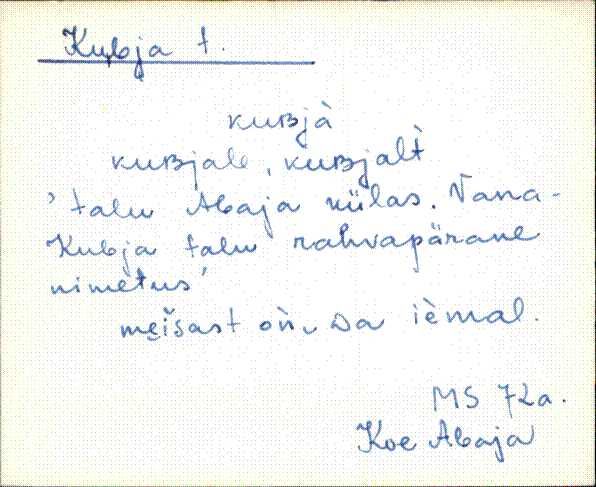 Kubja t.
kuʙjà
kuʙjale, kuʙjalt̀
'talu Abaja külas. Vana-
Kubja talu rahvapärane
nimetus'
mẹi̮šast òn, sa ièmal.
MS 72a.
Koe Abaja